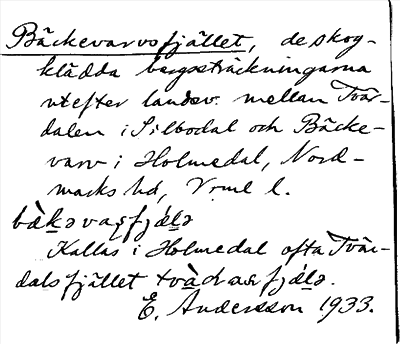 Bäckevarvsfjället, de skog-
klädda bergssträckningarna
utefter landsv. mellan Tvär-
dalen i Silbodal och Bäcke-
varv i Holmedal, Nord-
marks hd, Vrml l.
Kallas i Holmedal ofta Tvär-
dalsfjället
E. Andersson 1933.